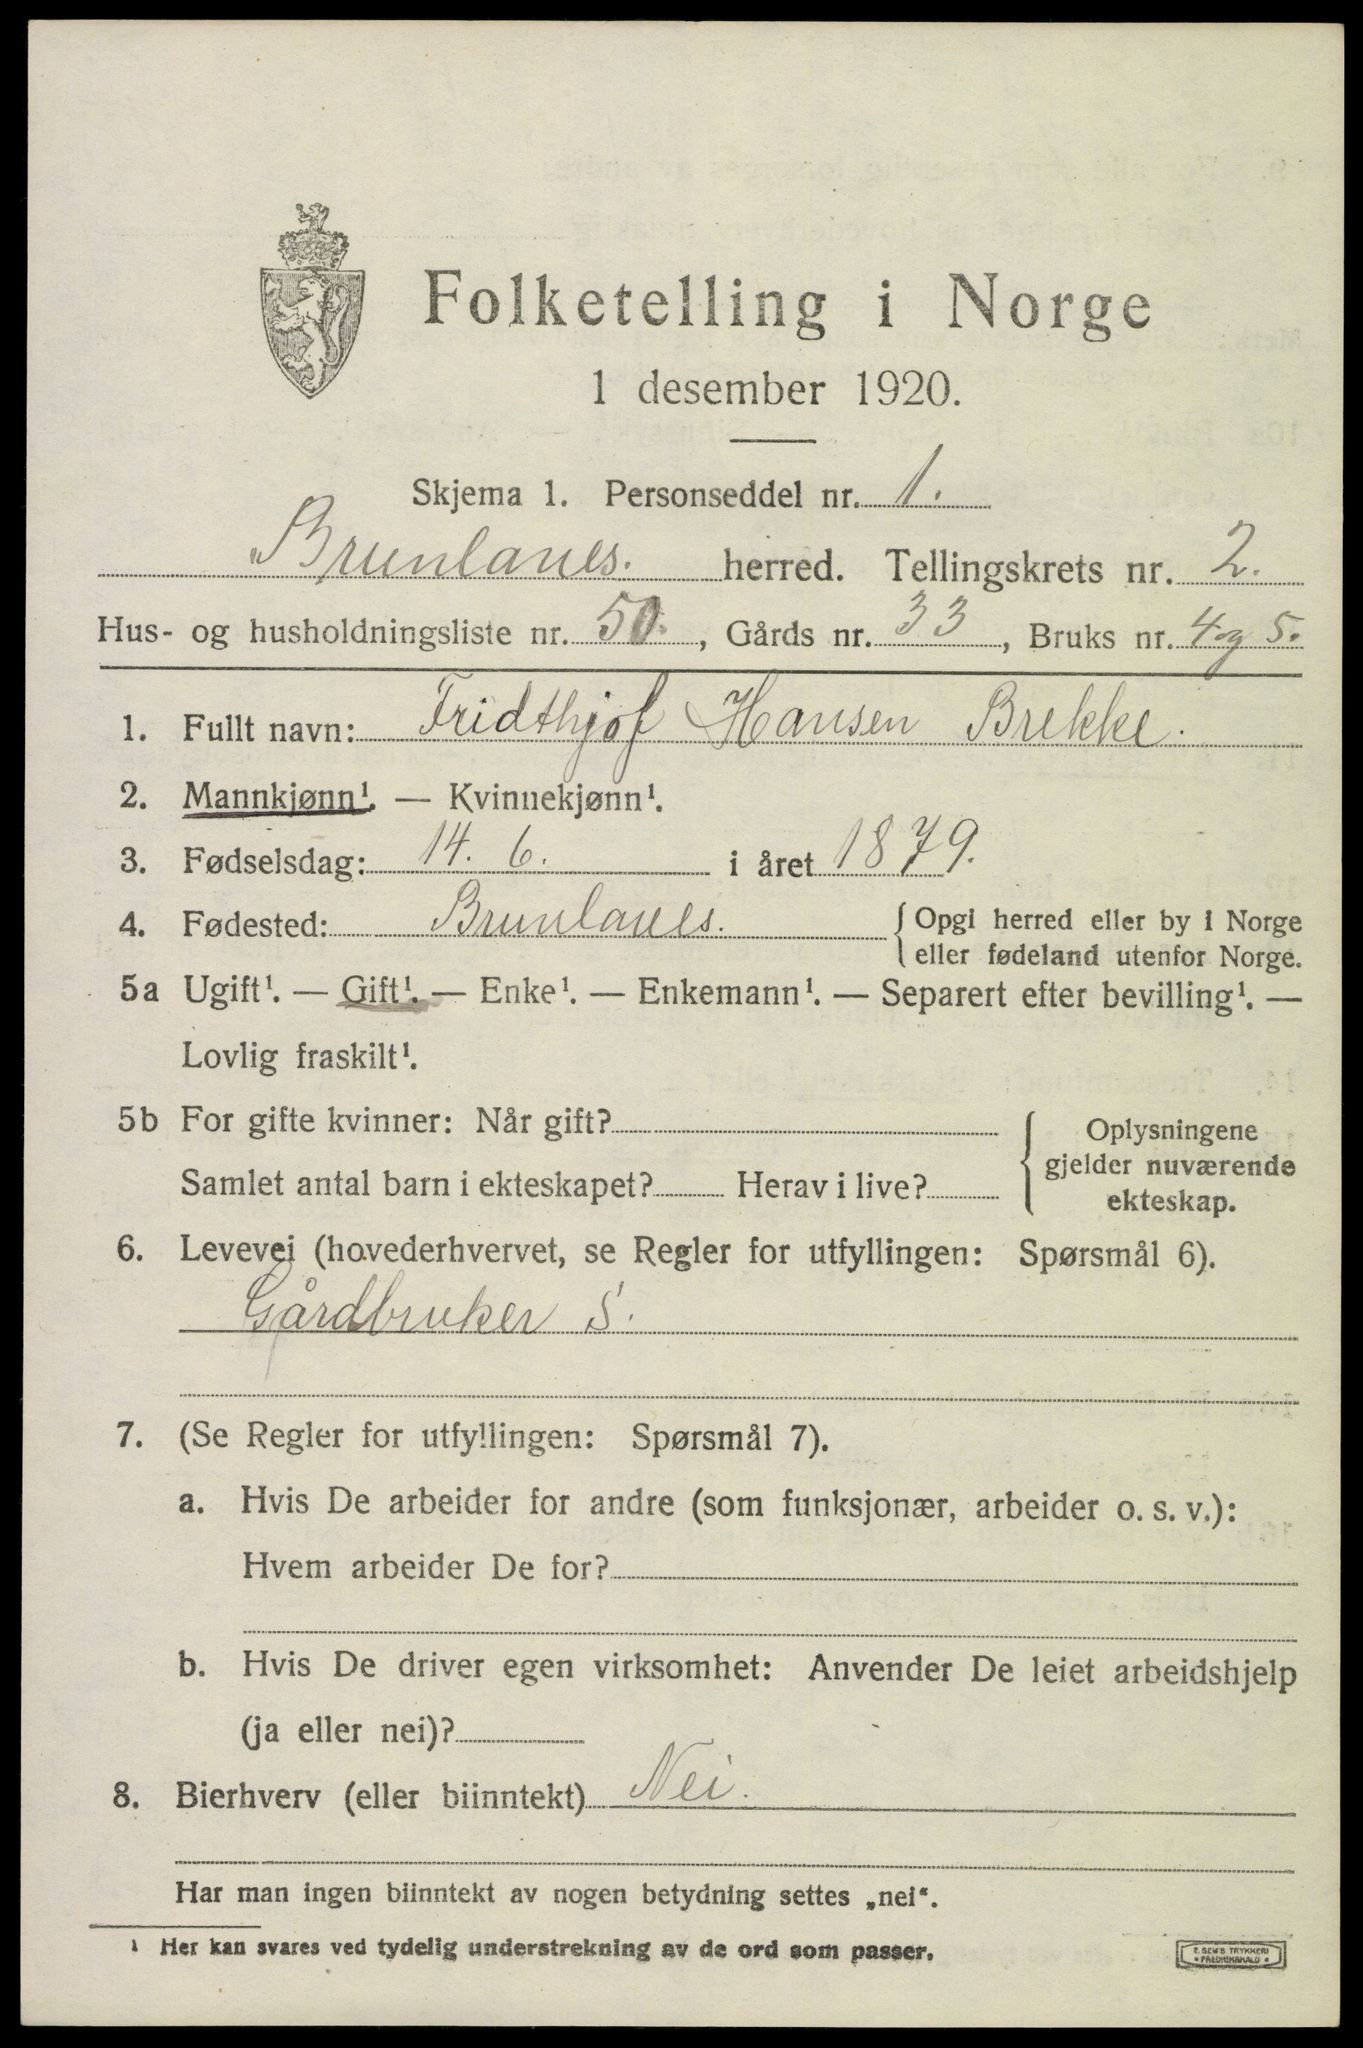 Folketelling i Norge
1 desember 1920.
Skjema 1. Personseddel nr. 1.
Brunlanes. herred. Tellingskrets nr. 2.
Hus- og husholdningsliste nr. 50., Gårds nr. 33, Bruks nr. 4 og 5.
1. Fullt navn: Fridthjof Hansen Brekke.
2. Mannkjønn¹. — Kvinnekjønn¹.
3. Fødselsdag: 14. 6. i året 1879.
4. Fødested: Brunlanes. { Opgi herred eller by i Norge
eller fødeland utenfor Norge.
5a Ugift¹. — Gift¹. — Enke¹. — Enkemann¹. — Separert efter bevilling¹. —
Lovlig fraskilt¹.
5b For gifte kvinner: Når gift?
Samlet antal barn i ekteskapet? Herav i live?
Oplysningene
gjelder nuværende
ekteskap.
6. Levevei (hovederhvervet, se Regler for utfyllingen: Spørsmål 6).
Gårdbruker S.
7. (Se Regler for utfyllingen: Spørsmål 7).
a. Hvis De arbeider for andre (som funksjonær, arbeider o. s. v.):
Hvem arbeider De for?
b. Hvis De driver egen virksomhet: Anvender De leiet arbeidshjelp
(ja eller nei)?
8. Bierhverv (eller biinntekt) Nei.
Har man ingen biinntekt av nogen betydning settes „nei“.
¹ Her kan svares ved tydelig understrekning av de ord som passer.
E. SEM'S TRYKKERI
FREDRIKSHALD